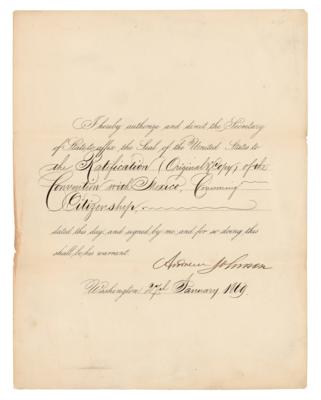 I hereby authorize and direct the Secretary
of State to affix the Seal of the United States to
the Ratification (Original & Copy) of the
Convention with Mexico, Concerning
Citizenship,
dated this day, and signed by me, and for so doing this
shall be his warrant.
Andrew Johnson
Washington 27th January 1869.